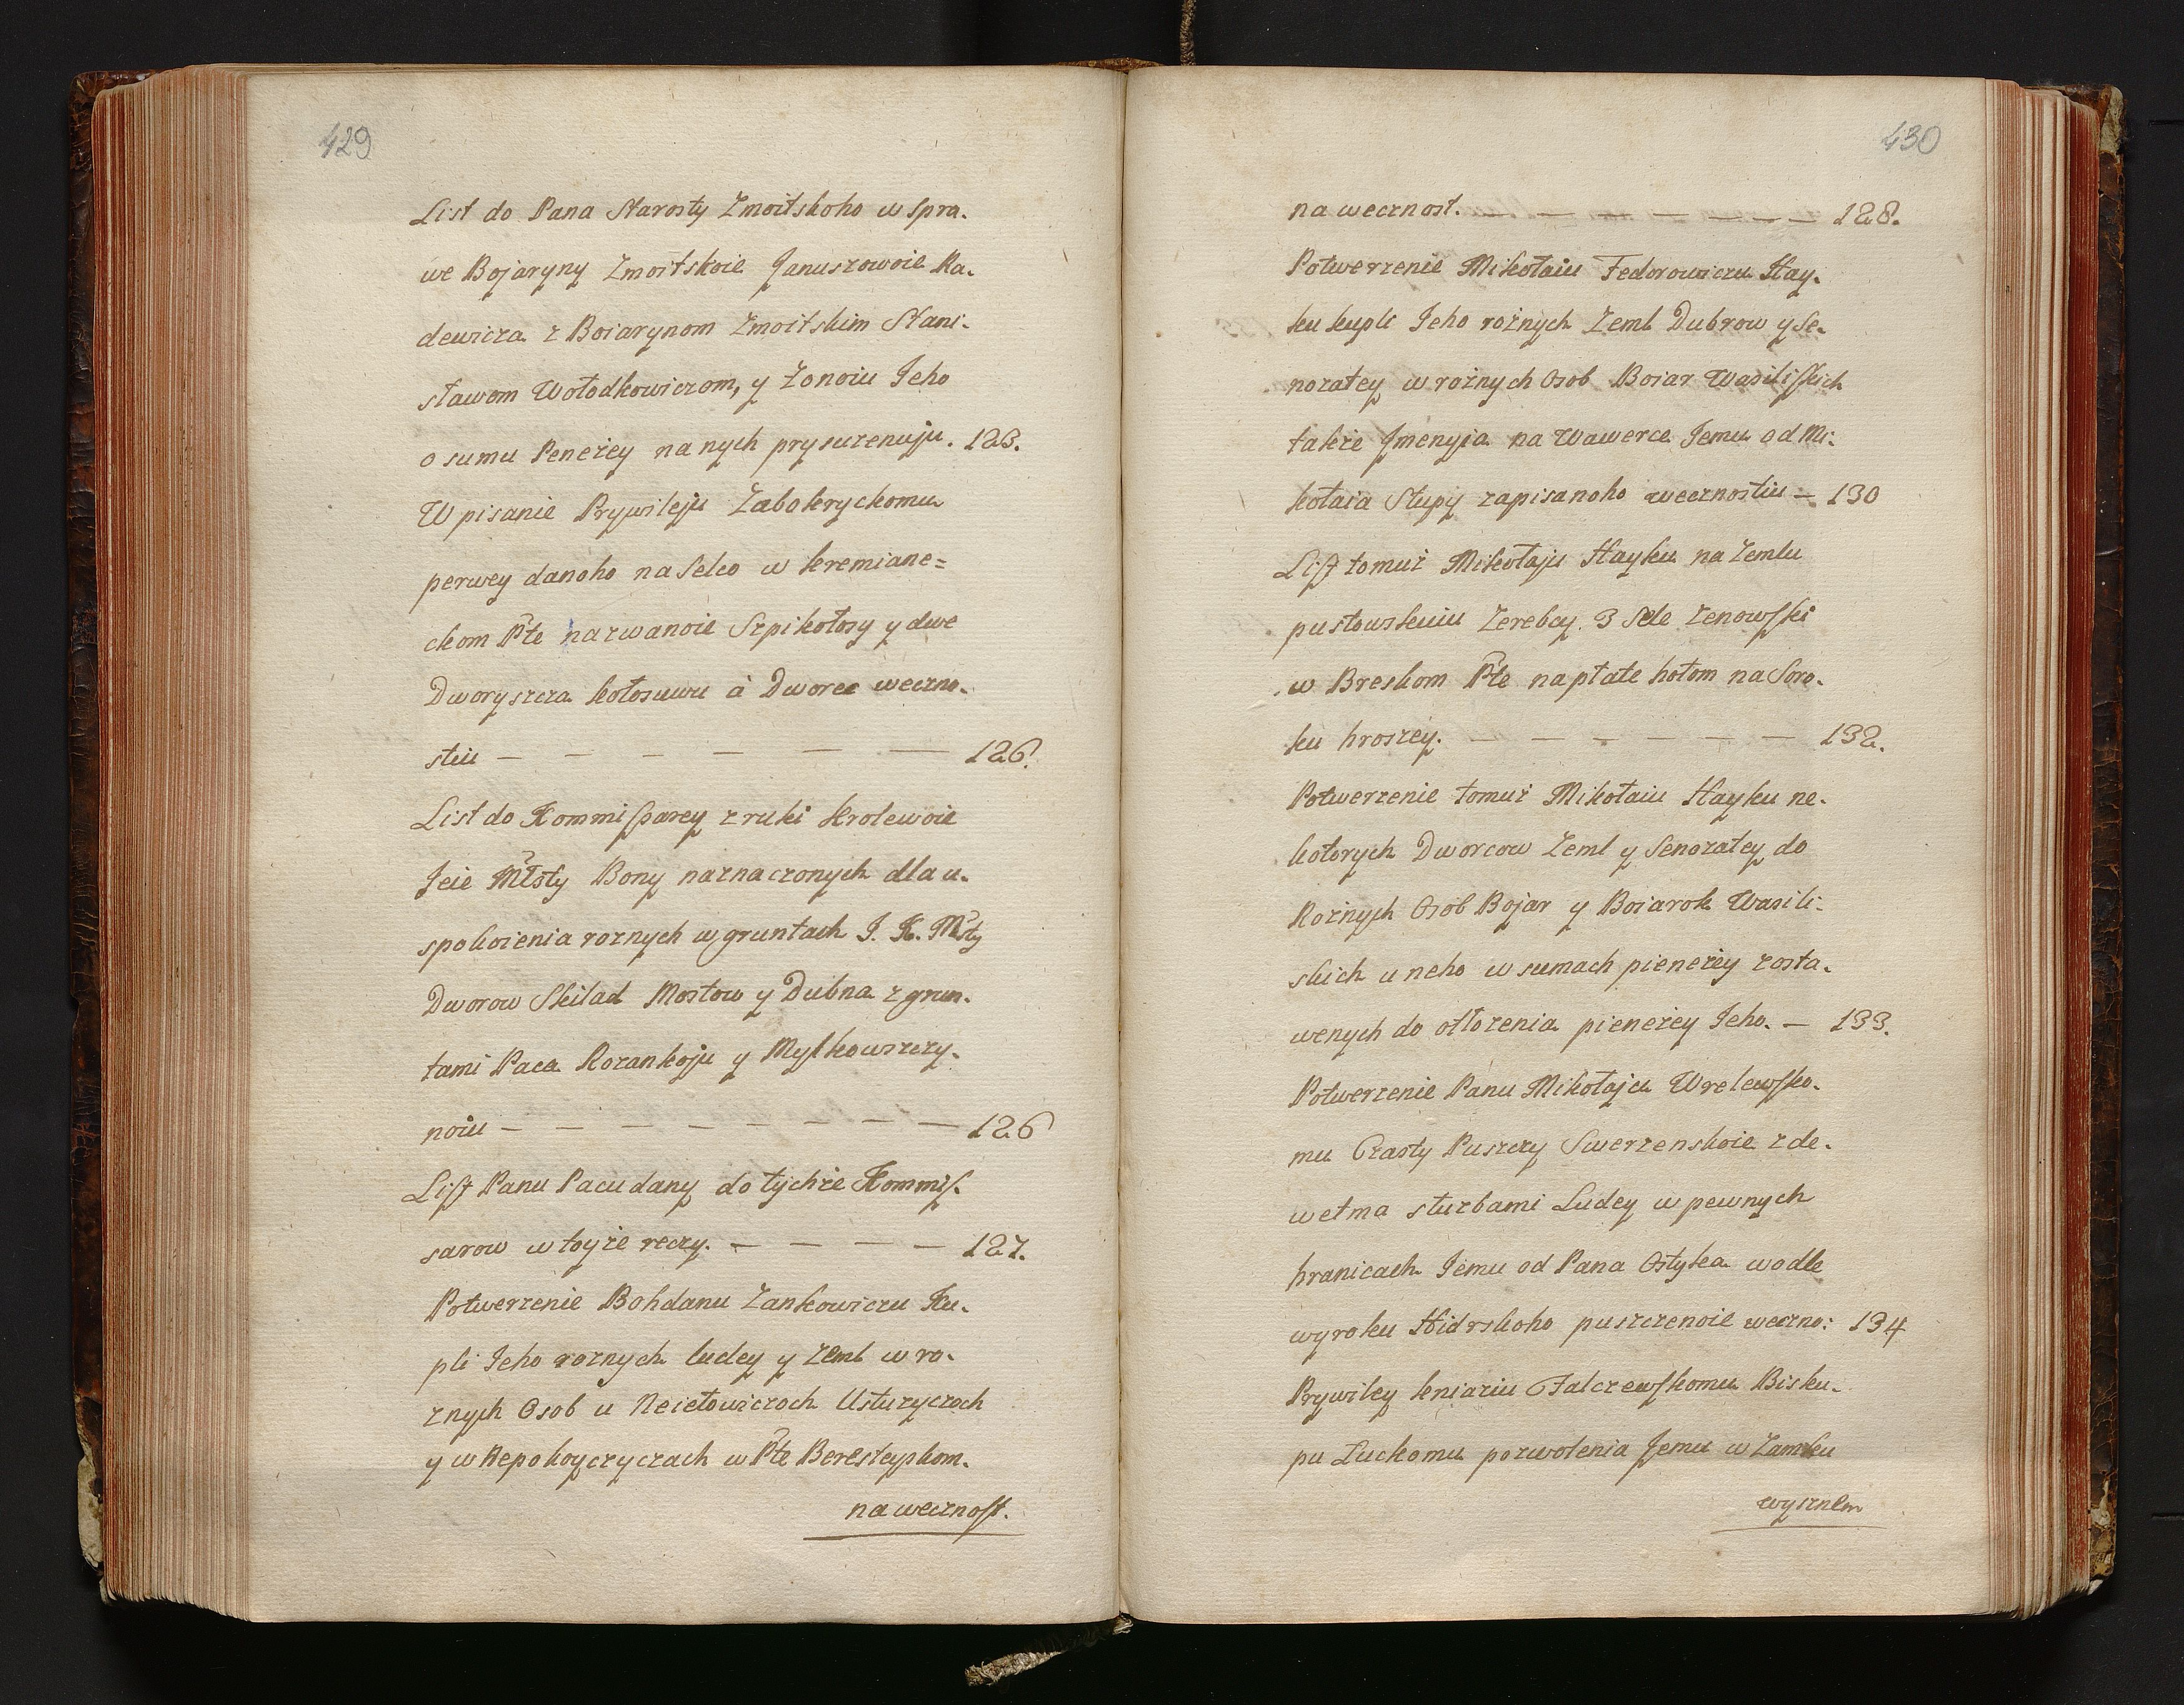 429
List do Pana Starosty Zmoitskoho w spra-
we Bojaryny Zmoitskoie Januszowoie Ra-
dewicza z Boiarynom Zmoitskim Stani-
sławom Wołodkowiczom, y Zonoiu Jeho
o sumu Peneżey na nych prysuzenuju. 123.
Wpisanie Prywileju Zabokryckomu
perwey danoho na Selco w kremiane=
ckom Pte nazwanoie Szpikołosy y dwe
Dworyszcza kołosuwu á Dworec weczno-
stiu — — — — — — 126.
List do Kommissarey z ruki krolewoie
Jeie Młsty Bony naznaczonych dla u-
spokoienia roznych w gruntach J. K. Młsty
Dworow Skilad Mostow y Dubna z grun-
tami Paca Rozankoju y Mylkowszczy-
noiu — — — — — — — — 126
List Panu Pacu dany do tychże Kommis-
sarow w toyże reczy. — — — — 127.
Potwerzenie Bohdanu Zankowiczu Ku-
pli Jeho roznych ludey y Zeml w ro-
znych Osob u Neietowiczoch Usturyczoch
y w Nepokoyczyczach w Pte Beresteyskom.
na wecznost.
430
na wecznost. — — — — — — 128.
Potwerzenie Mikołaiu Fedorowiczu Hay-
ku kupli Jeho rożnych Zeml Dubrow y Se-
nozatey w rożnych Osob Boiar Wasiliskich
także Jmenyja na Wawerce Jemu od Mi-
kołaia Stupy zapisanoho wecznostiu — 130
List tomuż Mikołaju Hayku na Zemlu
pustowskuiu Zerebcy 3 Sele Zenowski
w Breskom Pte na płate hołom na Soro-
ku hroszey. — — — — — — 132.
Potwerzenie tomuż Mikołaiu Hayku ne-
kotorych Dworcow Zeml y Senozatey do
Rożnych Osob Bojar y Boiarok Wasili-
skich u neho w sumach pieneżey zosta-
wenych do otłozenia pieneżey Jeho. — 133.
Potwerzenie Panu Mikołaju Wrelewsko-
mu Czasty Puszczy Swerzenskoie z de-
wetma służbami Ludey w pewnych
hranicach Jemu od Pana Ostyka wodle
wyroku Hidrskoho puszczenoie weczno: 134
Prywiley kniaziu Falczewskomu Bisku-
pu Łuckomu pozwolenia Jemu w Zamku
wysznem